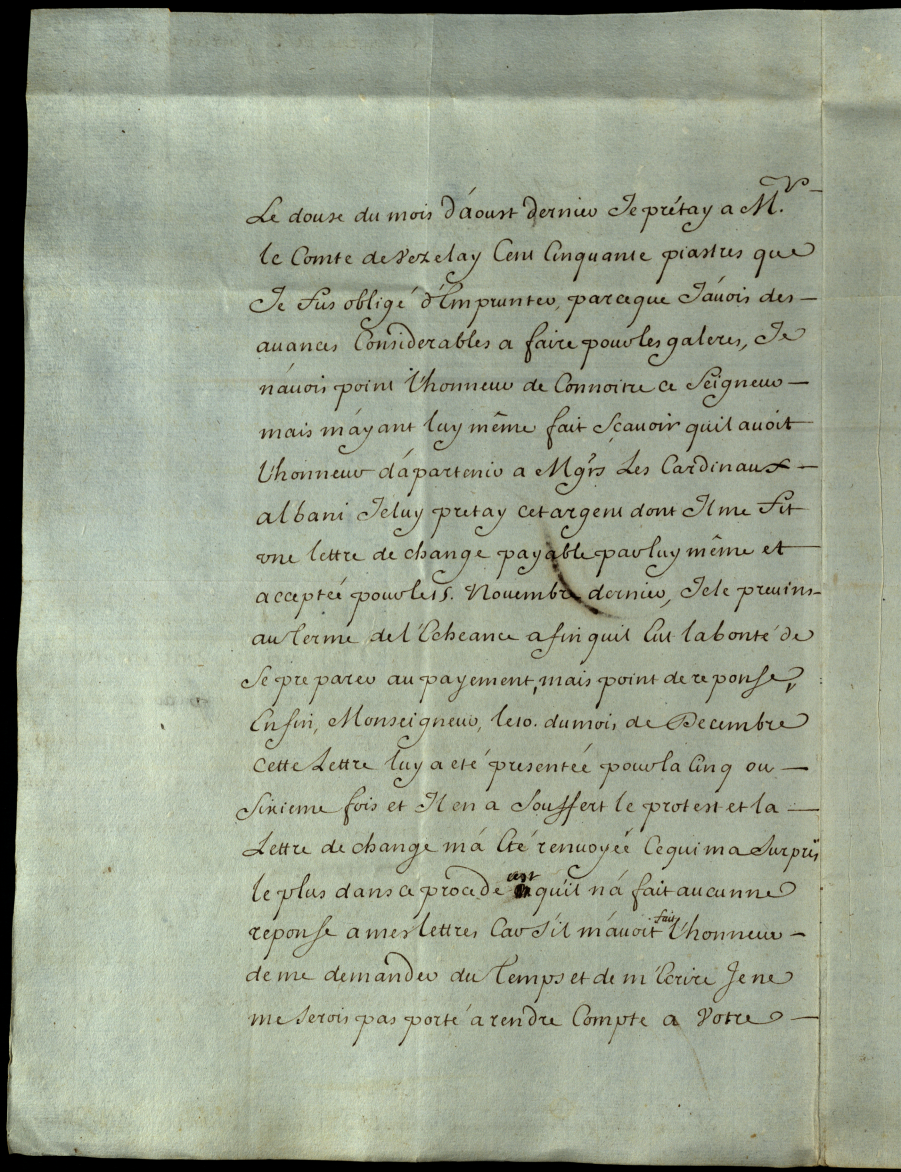 Le douse du mois d'áoust dernier Je prétay a M.r
le Comte de Vezelay Cent Cinquante piastres que
Je fus obligé d'Emprunter, parceque J'ávois des
auances Considerables a faire pour les galeres, Je
n'áuois point l'honneur de Connoitre ce Seigneur
mais m'áyant luy même fait Sçavoir quil avoit
l'honneur d'ápartenir a Mgrs Les Cardinaux
albani Je luy pretay cet argent dont Il me Fit
vne lettre de change payable par luy même et
acceptée pour le 15. Novembre dernier, Je le previns
au Terme de l'Echeance afin quil Eut la bonté de
Se preparer au payement, mais point de reponse,
Enfin, Monseigneur, le 10. du mois de Decembre
Cette Lettre luy a eté presentée pour la Cinq ou
Sixieme fois et Il en a Souffert le protest et la
Lettre de change m'á Eté renvoyée Ce qui ma Surpris
le plus dans ce procedé cest qu'il n'á fait aucunne
reponse a mes lettres Car S'il m'avoit fait l'honneur
de me demander du Temps et de m'Ecrire Je ne
me Serois pas porté a rendre Compte a Votre